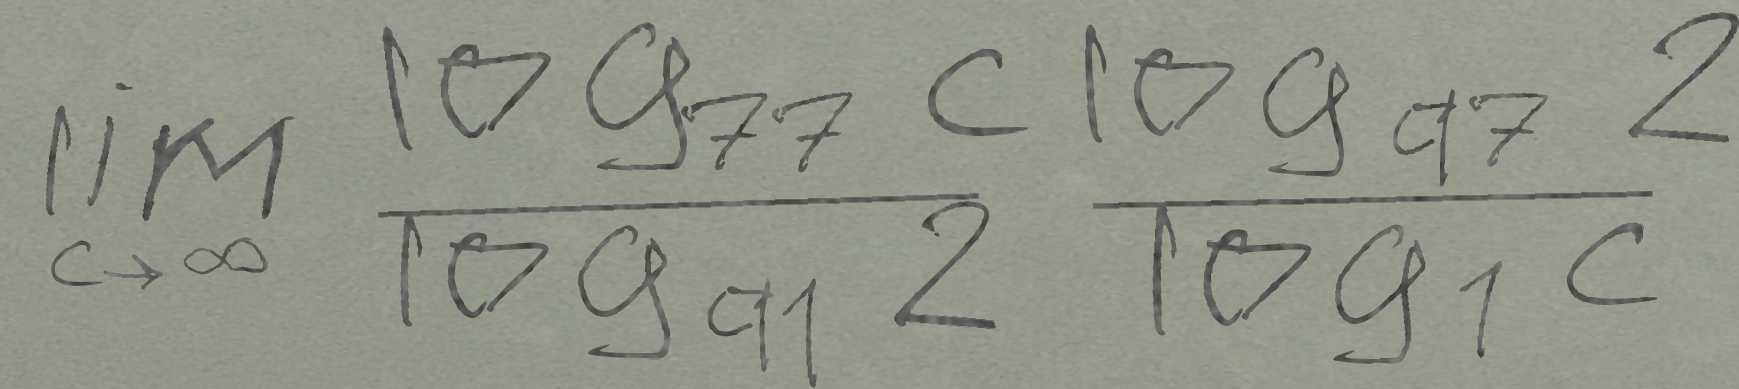 \lim_{c \to \infty} \frac{\log_{77} c}{\log_{91} 2} \frac{\log_{97} 2}{\log_{1} c}